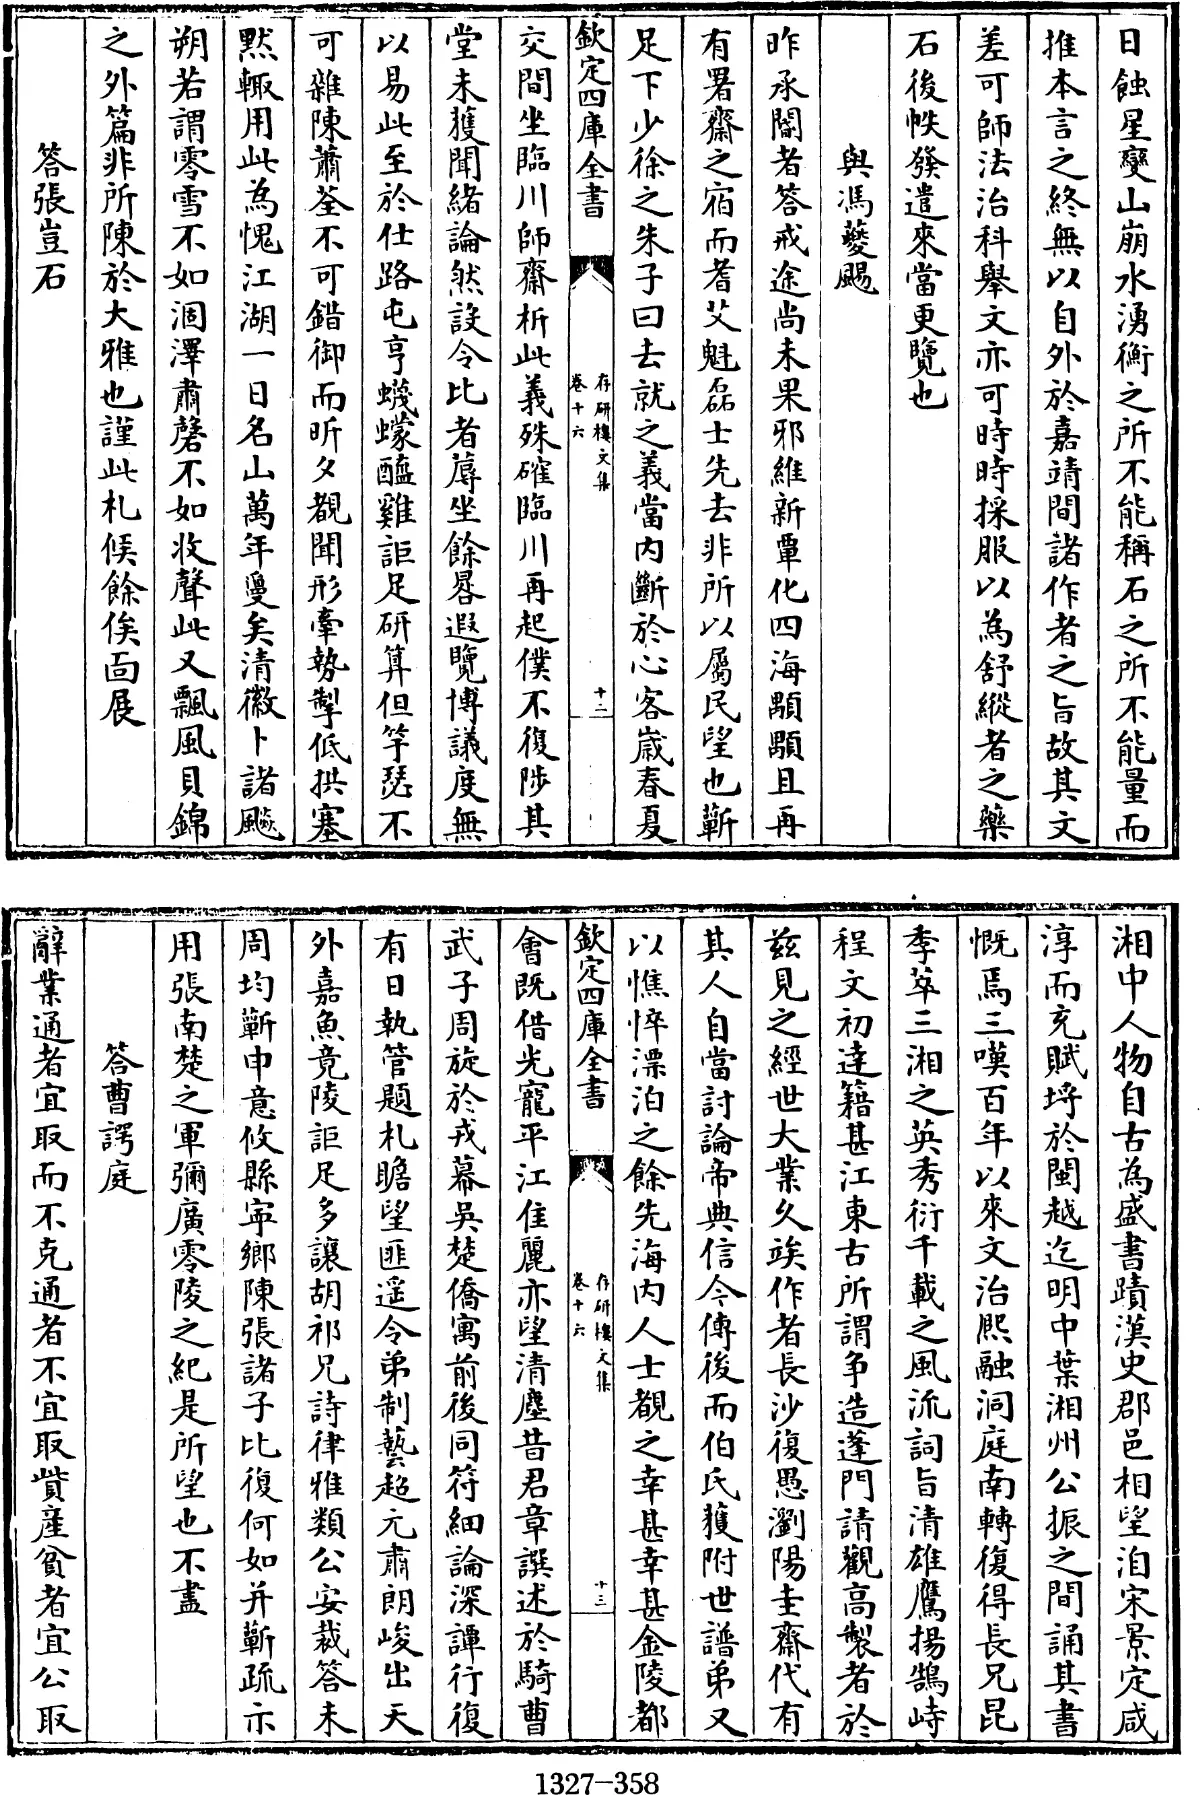 日蝕星變山崩水湧衡之所不能稱石之所不能量而
推本言之終無以自外於嘉靖間諸作者之旨故其文
差可師法治科舉文亦可時時採服以為舒縱者之藥
石後帙發遣來當更覽也
與馮夔颺
昨承閽者答戒途尚未果邪維新覃化四海顒顒且再
有署齋之宿而耆艾魁磊士先去非所以屬民望也蘄
足下少徐之朱子曰去就之義當內斷於心客歲春夏
欽定四庫全書
存研樓文集
卷十六
十二
交間坐臨川師齋析此義殊確臨川再起僕不復陟其
堂未獲聞緒論然設令比者蓐坐餘晷遐覽博議度無
以易此至於仕路屯亨蠛蠓醯雞詎足研算但竽瑟不
可雜陳蕭荃不可錯御而昕夕覩聞形牽勢掣低拱塞
默輙用此為愧江湖一日名山萬年憂矣清徽卜諸飈
朔若謂零雪不如涸澤肅磬不如收聲此又飄風貝錦
之外篇非所陳於大雅也謹此札候餘俟面展
答張豈石
湘中人物自古為盛書蹟漢史郡邑相望洎宋景定咸
淳而充賦埒於閩越迄明中葉湘州公振之間誦其書
慨焉三嘆百年以來文治熙融洞庭南轉復得長兄昆
季萃三湘之英秀衍千載之風流詞旨清雄鷹揚鵠峙
程文初達籍甚江東古所謂爭造蓬門請觀高製者於
兹見之經世大業久竢作者長沙復愚瀏陽圭齋代有
其人自當討論帝典信今傳後而伯氏獲附世譜弟又
以憔悴漂泊之餘先海內人士覩之幸甚幸甚金陵都
欽定四庫全書
存研樓文集
卷十六
十三
會既借光寵平江佳麗亦望清塵昔君章譔述於騎曹
武子周旋於戎幕吳楚僑寓前後同符細論深譚行復
有日執管題札瞻望匪遥令弟制藝超元肅朗峻出天
外嘉魚竟陵詎足多讓胡祁兄詩律雅類公安裁答未
周均蘄申意攸縣寧鄉陳張諸子比復何如并蘄疏示
用張南楚之軍彌廣零陵之紀是所望也不盡
答曹諤庭
辭業通者宜取而不克通者不宜取貲產貧者宜公取
1327-358